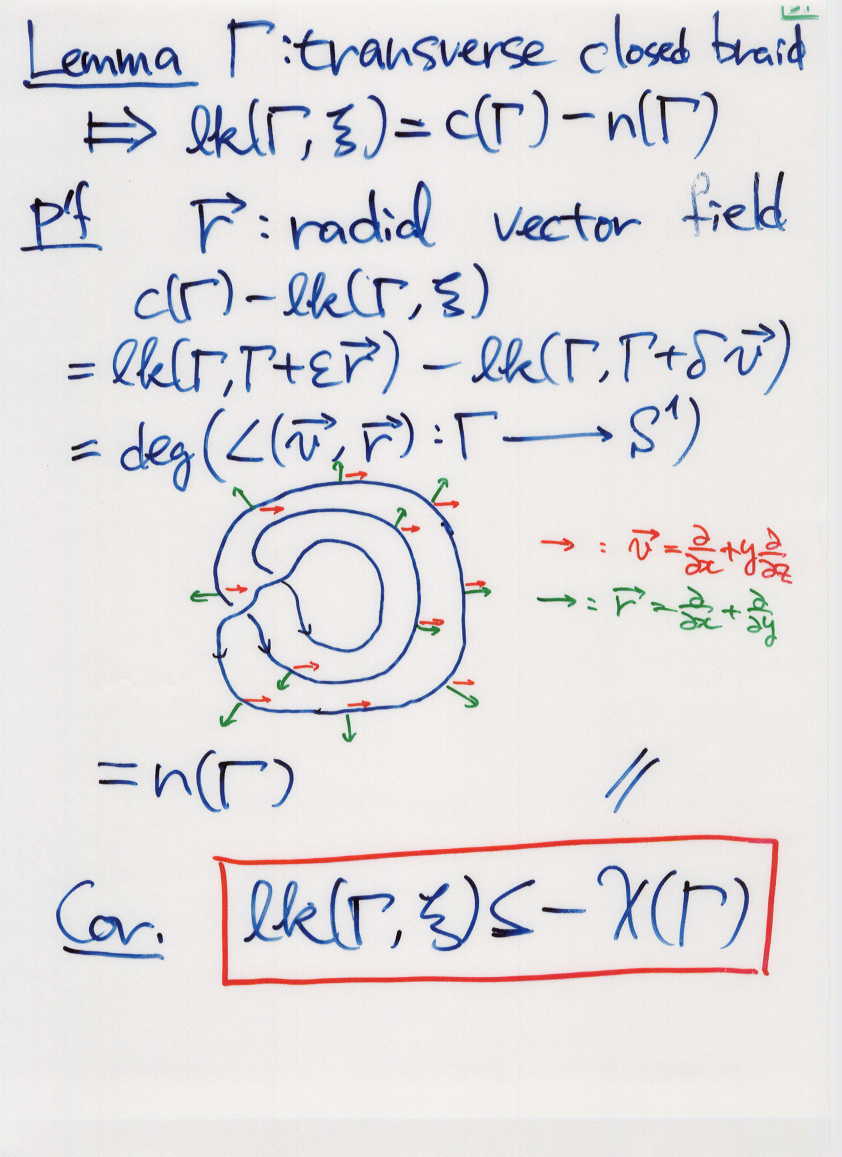 Lemma Γ : transverse closed braid
⟹ lk(Γ, ξ) = c(Γ) − n(Γ)
p'f r⃗ : radial vector field
c(Γ) − lk(Γ, ξ)
= lk(Γ, Γ + εr⃗) − lk(Γ, Γ + δv⃗)
= deg(∠(v⃗, r⃗) : Γ ⟶ S¹)
→ : v⃗ = ∂/∂x + y ∂/∂z
→ : r⃗ = ∂/∂x + ∂/∂y
= n(Γ) //
Cor. lk(Γ, ξ) ≤ − χ(Γ)